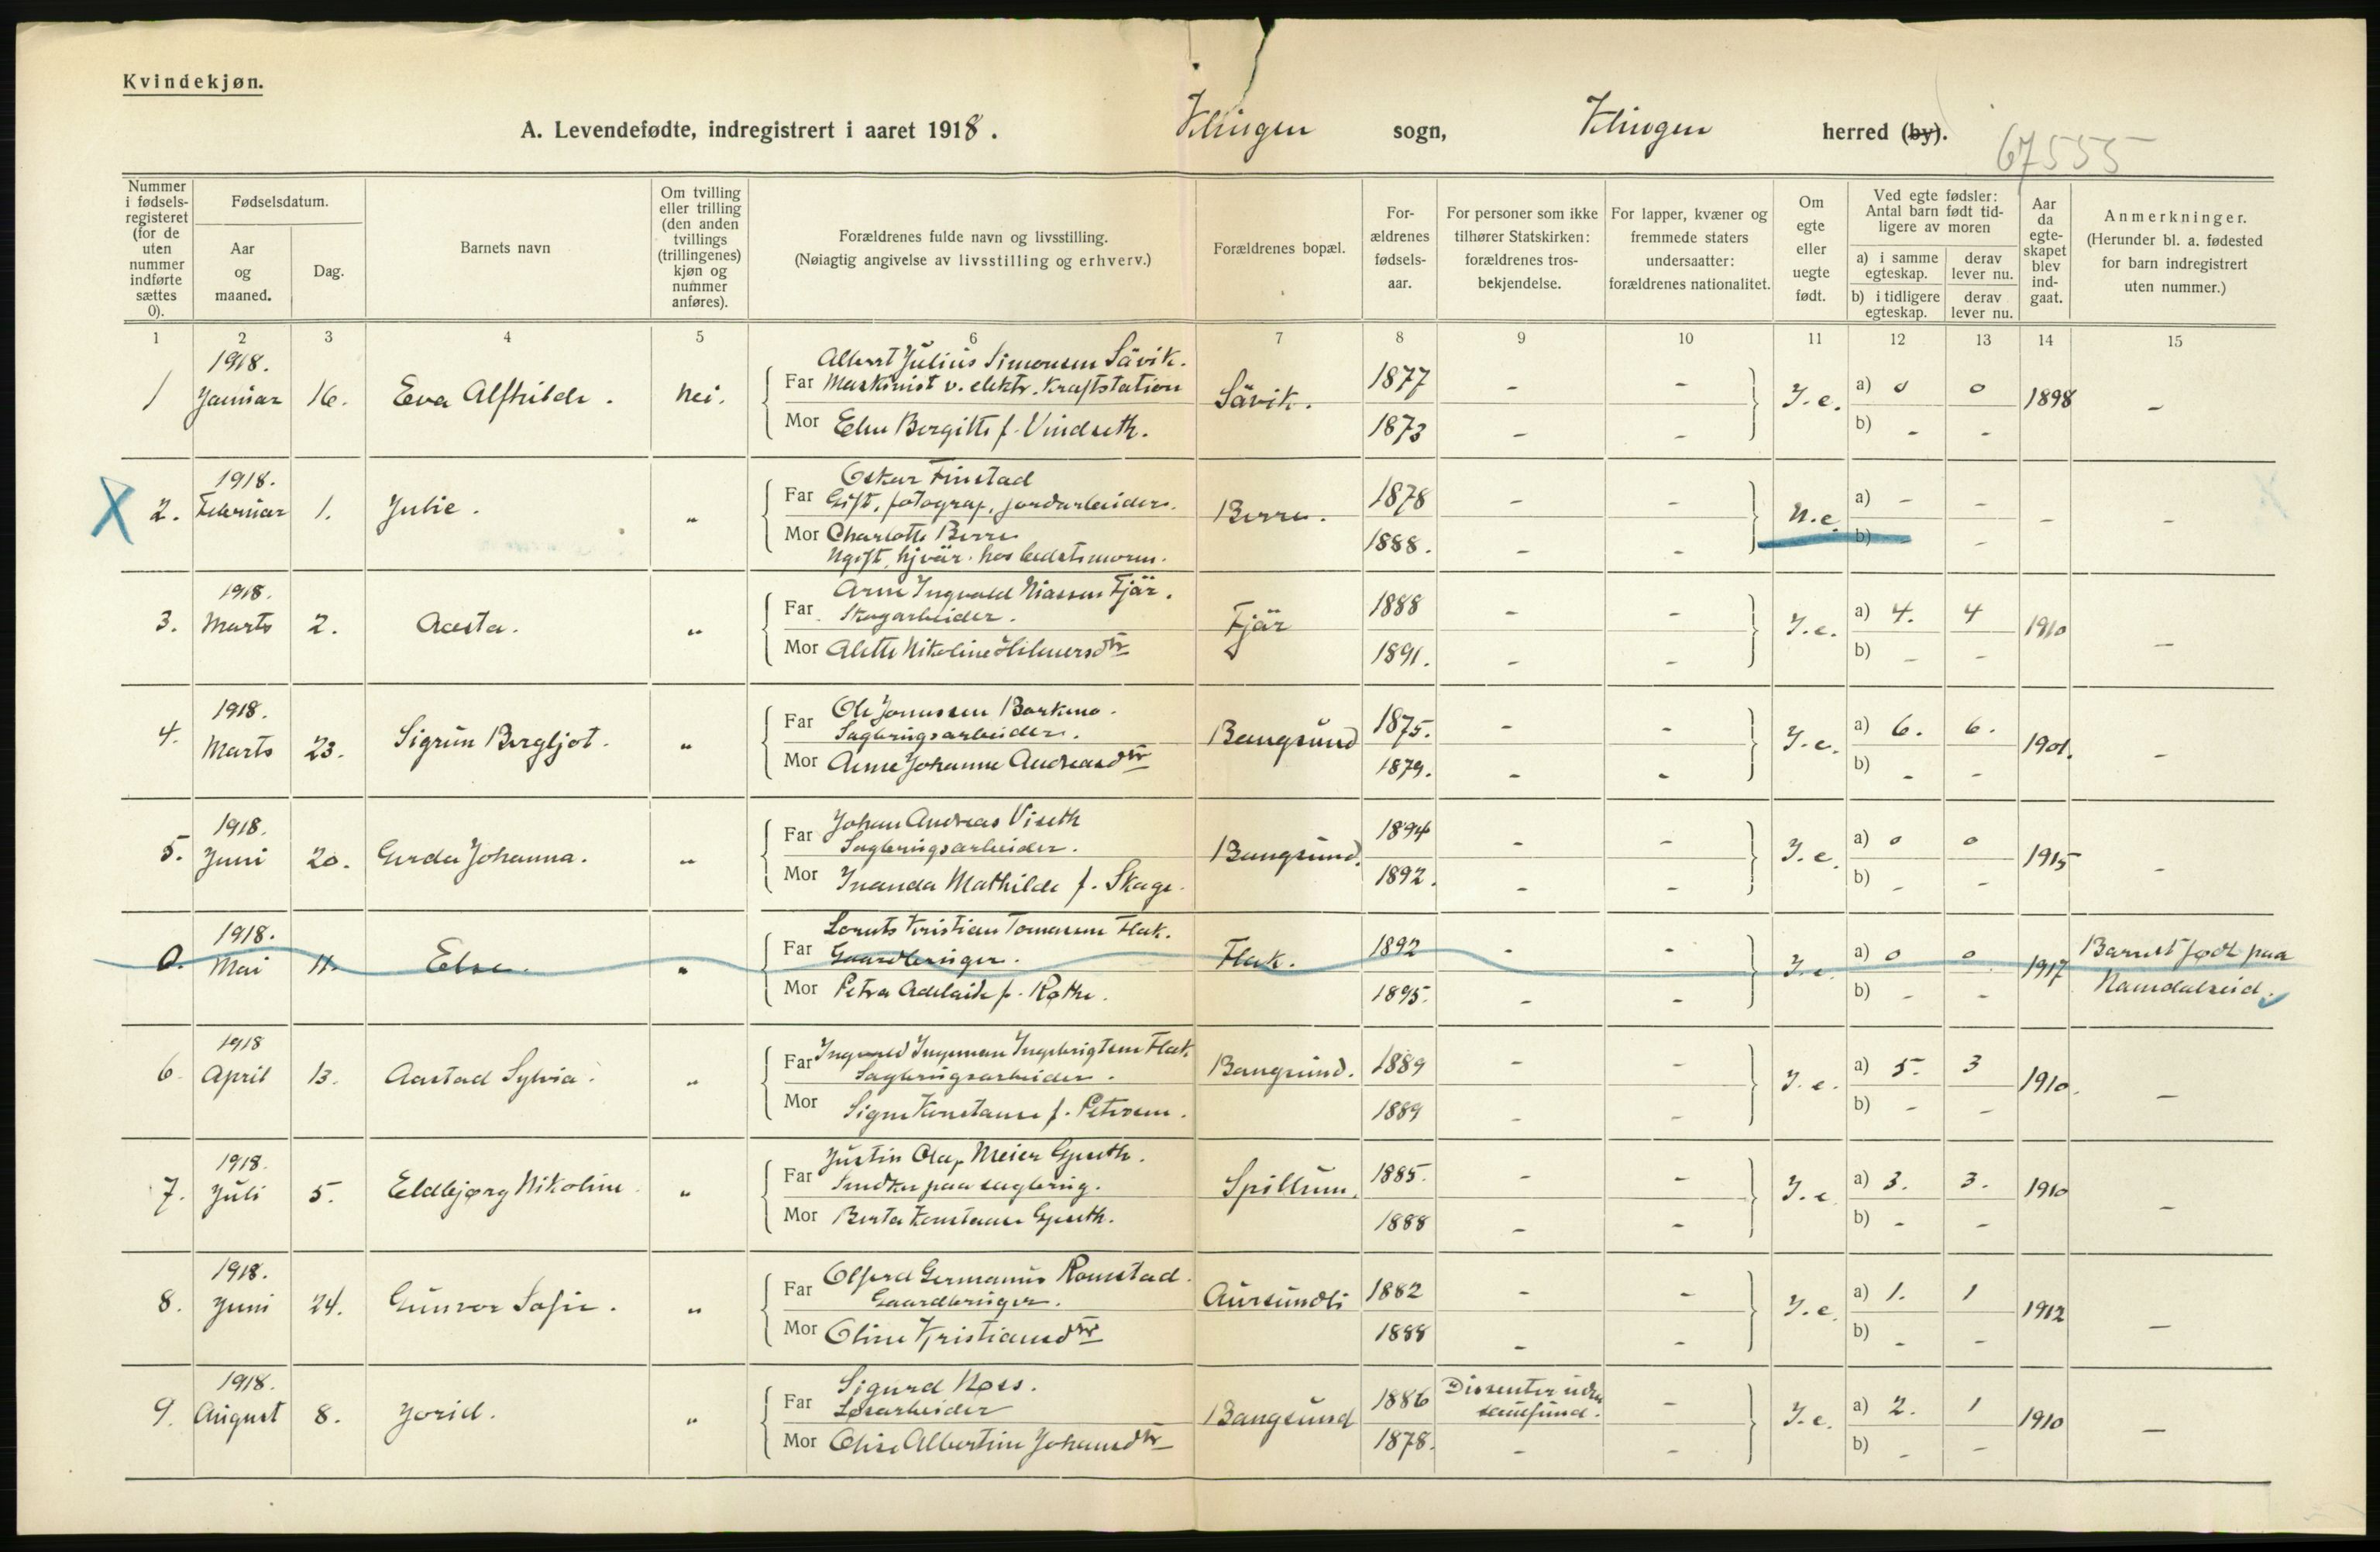 Kvindekjøn.
A. Levendefødte, indregistrert i aaret 1918. Klingen sogn, Klingen herred (by).
67555
Nummer i fødselsregisteret (for de uten nummer indførte sættes 0).
Fødselsdatum.
Aar og maaned.
Dag.
Barnets navn
Om tvilling eller trilling (den anden tvillings (trillingenes) kjøn og nummer anføres).
Forældrenes fulde navn og livsstilling.
(Nøiagtig angivelse av livsstilling og erhverv.)
Forældrenes bopæl.
Forældrenes fødselsaar.
For personer som ikke tilhører Statskirken: forældrenes trosbekjendelse.
For lapper, kvæner og fremmede staters undersaatter: forældrenes nationalitet.
Om egte eller uegte født.
Ved egte fødsler: Antal barn født tidligere av moren
a) i samme egteskap.
derav lever nu.
b) i tidligere egteskap.
derav lever nu.
Aar da egteskapet blev indgaat.
Anmerkninger.
(Herunder bl. a. fødested for barn indregistrert uten nummer.)
1 2 3 4 5 6 7 8 9 10 11 12 13 14 15
1918.
Albert Julius Simonsen Sävik.
1 Januar 16. Eva Alfhilde. Nei. Far Maskinist v. elektr. Kraftstation Sävik. 1877 - - J.e. a) 0 0 1898 -
Mor Elen Bergitte f. Vindseth. 1873 - - b) - -
1918.
Oskar Finstad
2. Februar 1. Julie. " Far Gift, fotograf, jordarbeider. Berre. 1878 - - U.e. a) - - - -
Mor Charlotte Berre 1888. - - b) -
Ugift, hjvär. hos bedstemoren.
1918.
Arne Ingvald Niassen Fjär.
3. Marts 2. Aasta. " Far Skogarbeider. Fjär 1888 - - J.e. a) 4. 4 1910 -
Mor Alette Nikoline Hilmersdtr 1891. - - b) - -
1918.
Ole Jonassen Barkmo.
4. Marts 23. Sigrun Bergljot. " Far Sagbrugsarbeider. Bangsund 1875. - - J.e. a) 6. 6. 1901. -
Mor Anne Johanne Andreasdtr 1879. - - b) - -
1918.
Johan Andreas Viseth
5. Juni 20. Gerda Johanna. " Far Sagbrugsarbeider. Bangsund. 1894 - - J.e. a) 0 0 1915 -
Mor Inanda Mathilde f. Skage. 1892. - - b) - -
1918.
Lornts Kristian Tomassen Flak.
0. Mai 11. Else. " Far Gaardbruger. Flak. 1892 - - J.e. a) 0 0 1917 Barnet født paa
Mor Petra Adelaide f. Røthe. 1895. - - b) - - Namdalseid.
1918
Ingvald Ingeman Ingebrigtsen Flak
6. April 13. Aastad Sylvia. " Far Sagbrugsarbeider. Bangsund. 1889 - - J.e. a) 5. 3 1910. -
Mor Signe Konstanse f. Petersen. 1889 - - b) - -
1918.
Justin Olaf Meier
7. Juli 5. Eldbjørg Nikoline " Far Smed paa sagbrug. Spillum. 1885. - - J.e. a) 3. 3. 1910 -
Mor Berta Konstanse 1888 - - b) - -
1918.
Olferd Germanus Romstad.
8. Juni 24. Gunvor Sofie. " Far Gaardbruger. Aursundli 1882 - - J.e. a) 1. 1 1912 -
Mor Oline Kristiansdtr 1888 - - b) - -
1918.
Sigurd Ness.
9. August 8. Jorid. " Far Løsarbeider Bangsund 1886 Dissenter uden samfund. - J.e. a) 2. 1 1910 -
Mor Elise Albertine Johansdtr 1878. - - b) - -